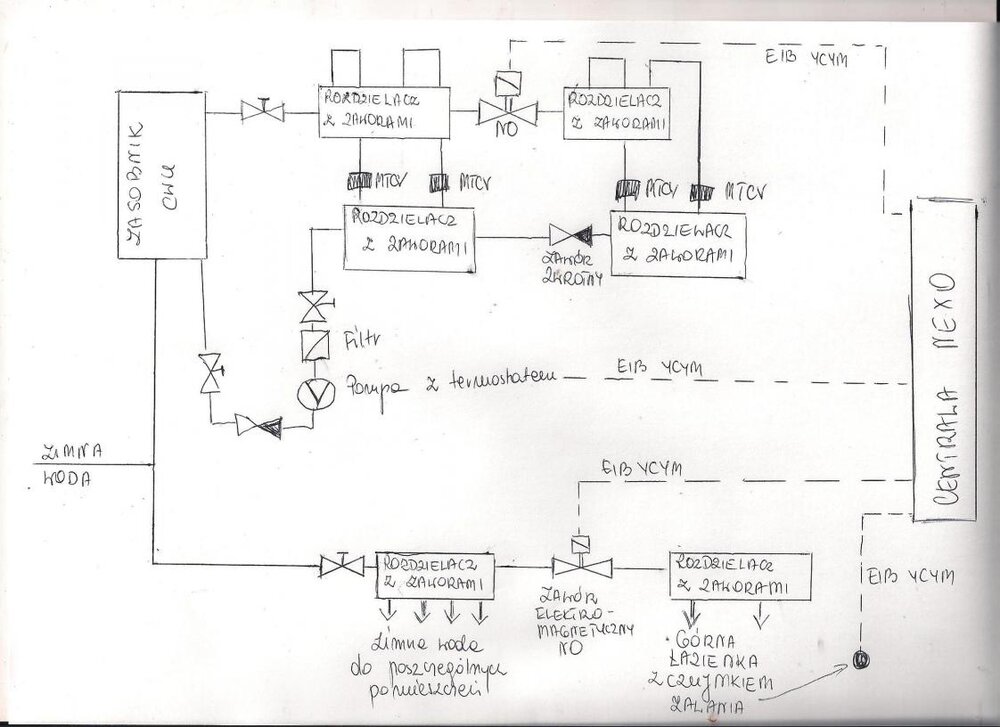 EIB YCYM
ROZDZIELACZ
Z ZAWORAMI
NO
ROZDZIELACZ
Z ZAWORAMI
ZASOBNIK
CWU
MTCV
MTCV
MTCV
MTCV
ROZDZIELACZ
Z ZAWORAMI
ZAWÓR
ZWROTNY
ROZDZIELACZ
Z ZAWORAMI
CENTRALA NEXO
Filtr
Pompa z termostatem
EIB YCYM
ZIMNA
WODA
EIB YCYM
ROZDZIELACZ
Z ZAWORAMI
ZAWÓR
ELEKTRO-
MAGNETYCZNY
NO
ROZDZIELACZ
Z ZAWORAMI
EIB YCYM
Zimna woda
do poszczególnych
pomieszczeń
GÓRNA
ŁAZIENKA
Z CZUJNIKIEM
ZALANIA